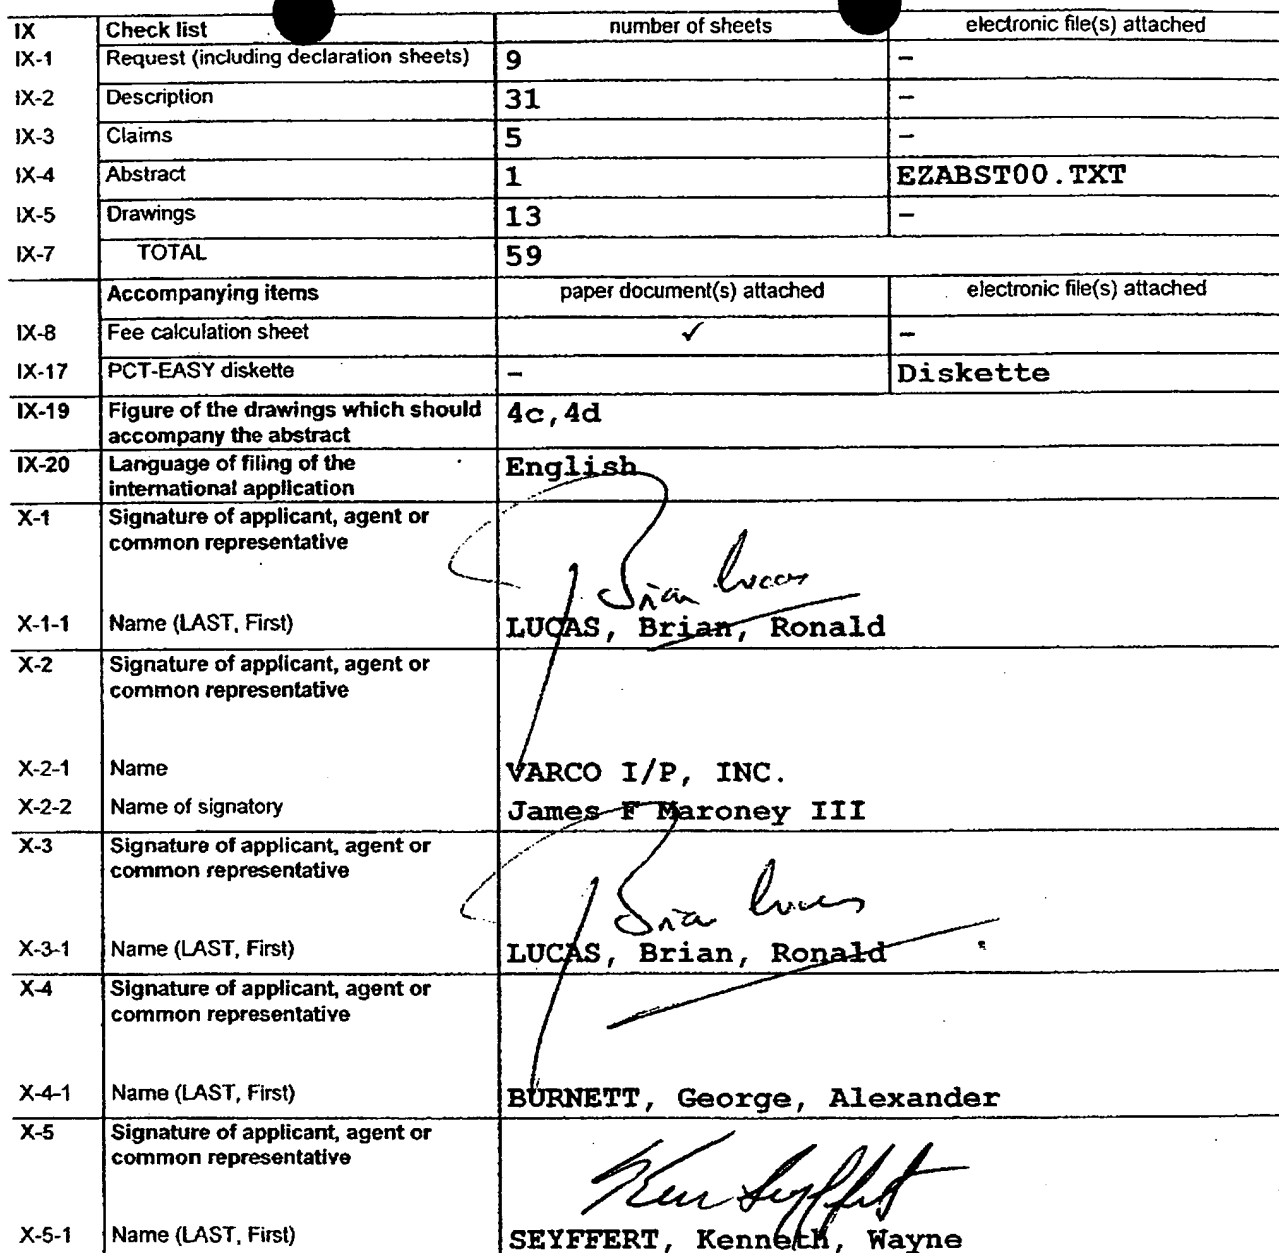 IX Check list number of sheets electronic file(s) attached
IX-1 Request (including declaration sheets) 9 -
IX-2 Description 31 -
IX-3 Claims 5 -
IX-4 Abstract 1 EZABST00.TXT
IX-5 Drawings 13 -
IX-7 TOTAL 59
Accompanying items paper document(s) attached electronic file(s) attached
IX-8 Fee calculation sheet ✓ -
IX-17 PCT-EASY diskette - Diskette
IX-19 Figure of the drawings which should 4c,4d
accompany the abstract
IX-20 Language of filing of the English
international application
X-1 Signature of applicant, agent or
common representative
Brian Lucas
X-1-1 Name (LAST, First) LUCAS, Brian, Ronald
X-2 Signature of applicant, agent or
common representative
X-2-1 Name VARCO I/P, INC.
X-2-2 Name of signatory James F Maroney III
X-3 Signature of applicant, agent or
common representative
Brian Lucas
X-3-1 Name (LAST, First) LUCAS, Brian, Ronald
X-4 Signature of applicant, agent or
common representative
X-4-1 Name (LAST, First) BURNETT, George, Alexander
X-5 Signature of applicant, agent or
common representative
Ken Seyffert
X-5-1 Name (LAST, First) SEYFFERT, Kenneth, Wayne